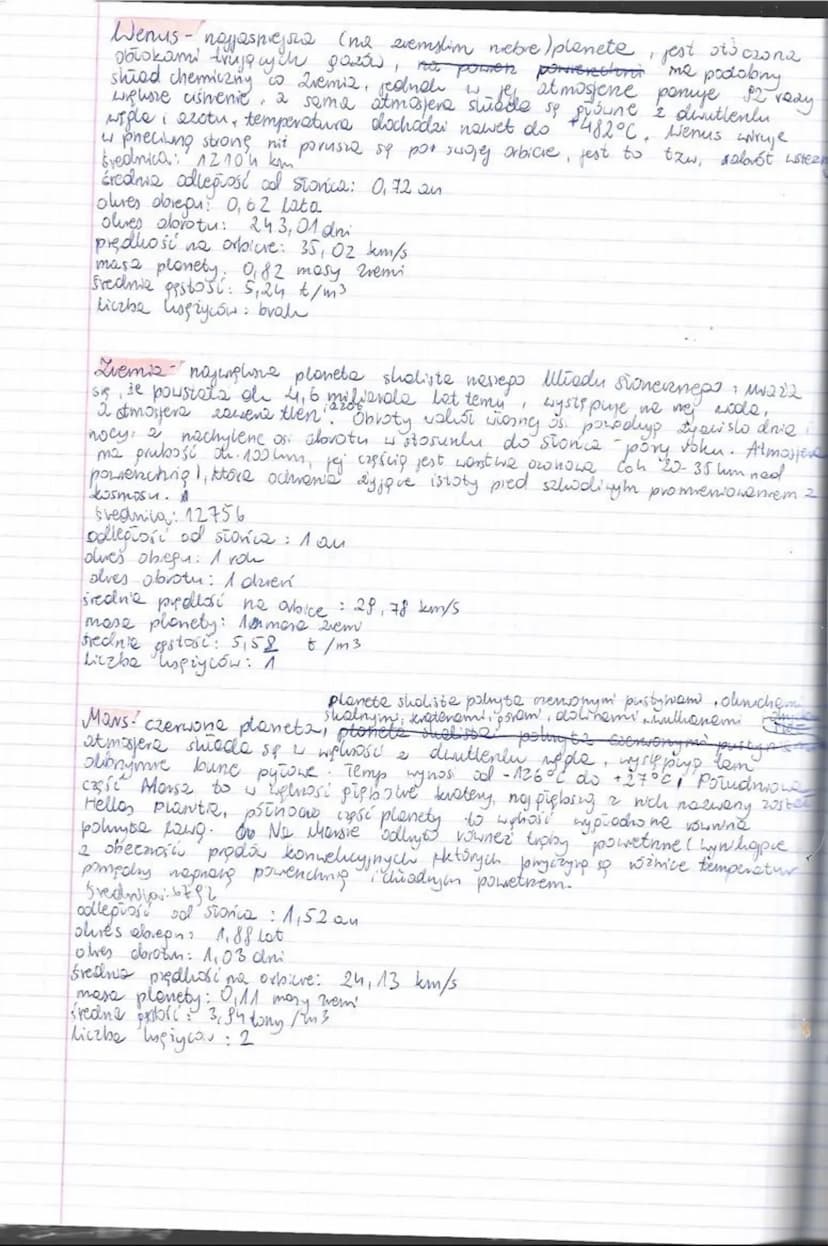 Wenus - najjaśniejsza (na ziemskim niebie) planeta, jest otoczona
obłokami trujących gazów, na powierz powierzchni ma podobny
skład chemiczny co Ziemia, jednak w jej atmosferze panuje 92 razy
większe ciśnienie, a sama atmosfera składa się głównie z dwutlenku
węgla i azotu, temperatura dochodzi nawet do +482°C. Wenus wiruje
w przeciwną stronę niż porusza się po swojej orbicie, jest to tzw.
średnica: 12104 km
średnia odległość od słońca: 0,72 au
okres obiegu: 0,62 lata
okres obrotu: 243,01 dni
prędkość na orbicie: 35,02 km/s
masa planety: 0,82 masy ziemi
średnia gęstość: 5,24 t/m³
liczba księżyców: brak
Ziemia - największa planeta skalista naszego Układu Słonecznego, uważa
się, że powstała ok 4,6 miliarda lat temu, występuje na niej woda,
a atmosfera zawiera tlen, azot. Obroty wokół własnej osi powodują zjawisko dnia i
nocy, a nachylenie osi obrotu w stosunku do słońca - pory roku. Atmosfera
ma grubość ok. 100 km, jej częścią jest warstwa ozonowa (ok 20-35 km nad
powierzchnią), która ochrania żyjące istoty przed szkodliwym promieniowaniem z
kosmosu.
średnica: 12756
odległość od słońca: 1 au
okres obiegu: 1 rok
okres obrotu: 1 dzień
średnia prędkość na orbicie: 29,78 km/s
masa planety: 1 masa ziemi
średnia gęstość: 5,52 t/m³
liczba księżyców: 1
planeta skalista pokryta czerwonymi pustyniami, okruchami
skalnymi, kraterami, górami, dolinami, wulkanami
Mars - czerwona planeta, planeta skalista pokryta czerwonymi pustyn
atmosfera składa się w większości z dwutlenku węgla, występują tam
olbrzymie burze pyłowe. Temp wynosi od -126°C do +27°C, Południowa
część Marsa to w większości głębokie kratery, najgłębszy z nich nazwany został
Hellas Planitia, północna część planety to wygładzona równina
pokryta lawą. Na Marsie odkryto również trąby powietrzne (wynikające
z obecności prądów konwekcyjnych których przyczyną są różnice temperatur
pomiędzy nagrzaną powierzchnią i chłodnym powietrzem.
średnica: 6792
odległość od słońca: 1,52 au
okres obiegu: 1,88 lat
okres obrotu: 1,03 dni
średnia prędkość na orbicie: 24,13 km/s
masa planety: 0,11 masy ziemi
średnia gęstość: 3,94 tony/m3
liczba księżyców: 2